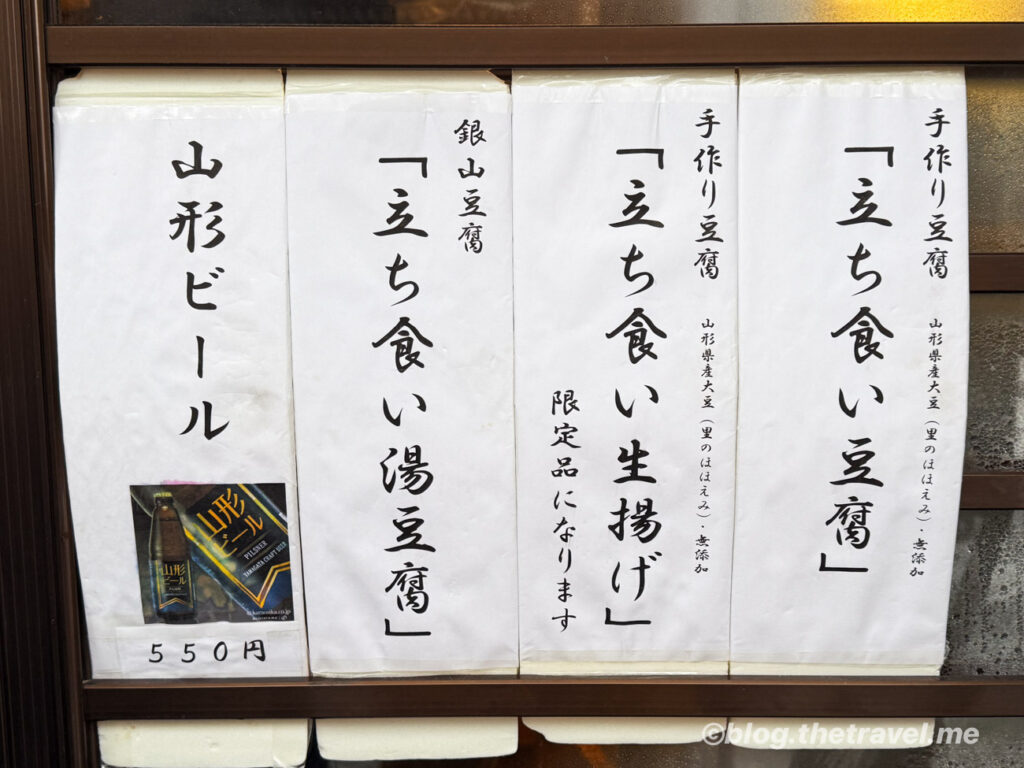 手作り豆腐
山形県産大豆（里のほほえみ）・無添加
「立ち食い豆腐」
手作り豆腐
山形県産大豆（里のほほえみ）・無添加
「立ち食い生揚げ」
限定品になります
銀山豆腐
「立ち食い湯豆腐」
山形ビール
山形
ビール
PILSNER
YAMAGATA CRAFT BEER
山形
ビール
550円
©blog.thetravel.me